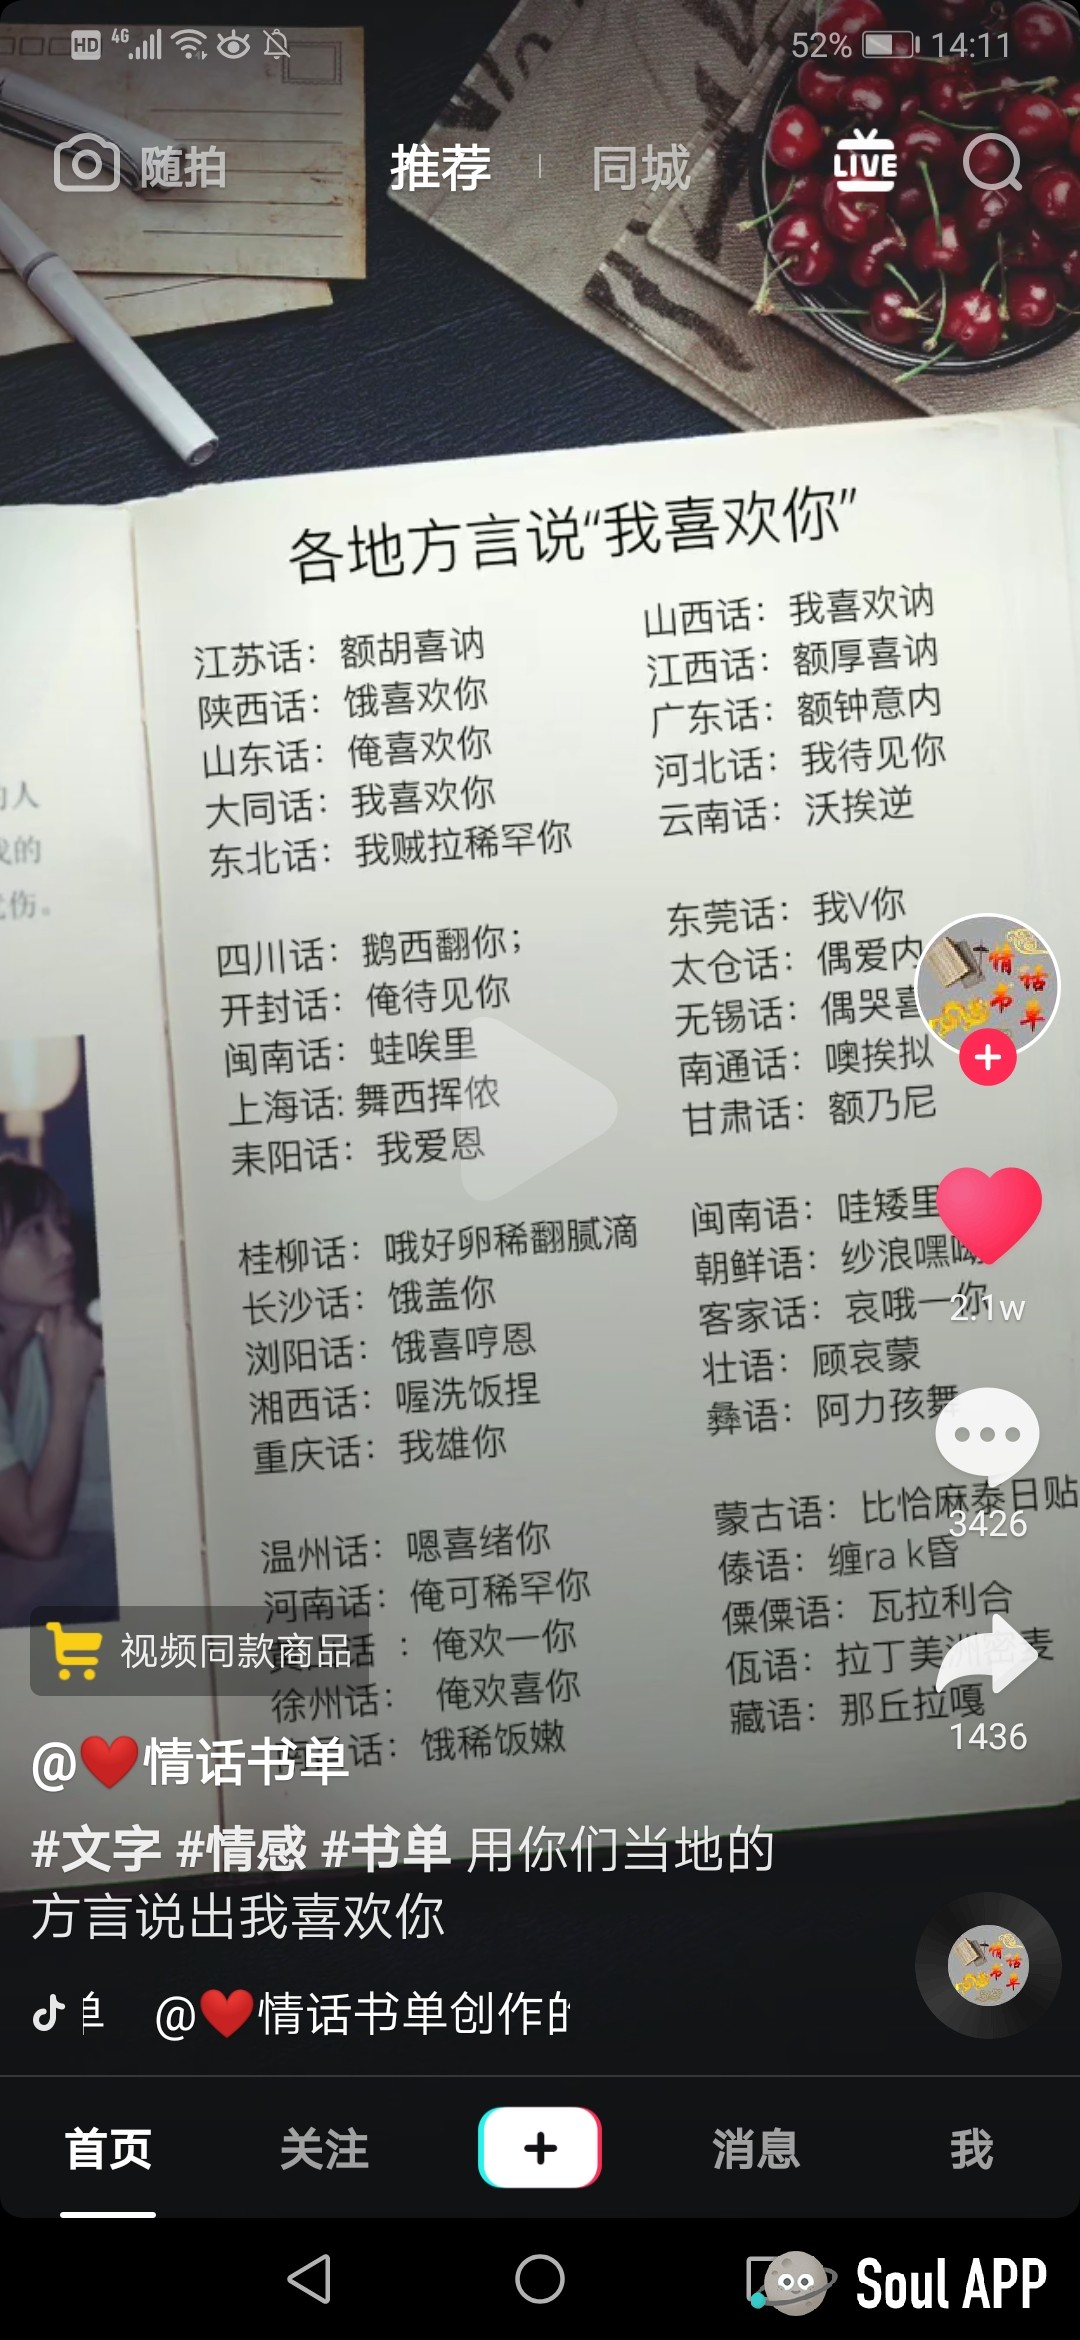 HD 4G 52% 14:11
随拍 推荐 同城 LIVE
各地方言说“我喜欢你”
江苏话：额胡喜讷
陕西话：饿喜欢你
山东话：俺喜欢你
大同话：我喜欢你
东北话：我贼拉稀罕你
山西话：我喜欢讷
江西话：额厚喜讷
广东话：额钟意内
河北话：我待见你
云南话：沃挨逆
的人
我的
伤。
四川话：鹅西翻你；
开封话：俺待见你
闽南话：蛙唉里
上海话: 舞西挥侬
耒阳话：我爱恩
东莞话：我V你
太仓话：偶爱内
无锡话：偶哭喜
南通话：噢挨拟
甘肃话：额乃尼
桂柳话：哦好卵稀翻腻滴
长沙话：饿盖你
浏阳话：饿喜哼恩
湘西话：喔洗饭捏
重庆话：我雄你
闽南语：哇矮里
朝鲜语：纱浪嘿
客家话：哀哦一你
壮语：顾哀蒙
彝语：阿力孩舞
温州话：嗯喜绪你
河南话：俺可稀罕你
话：俺欢一你
徐州话：俺欢喜你
话：饿稀饭嫩
蒙古语：比恰麻泰日贴
傣语：缠ra k昏
傈僳语：瓦拉利合
佤语：拉丁美洲密麦
藏语：那丘拉嘎
情话书单
2.1w
3426
1436
视频同款商品
@❤️情话书单
#文字 #情感 #书单 用你们当地的
方言说出我喜欢你
单 @❤️情话书单创作的
首页 关注 消息 我
Soul APP